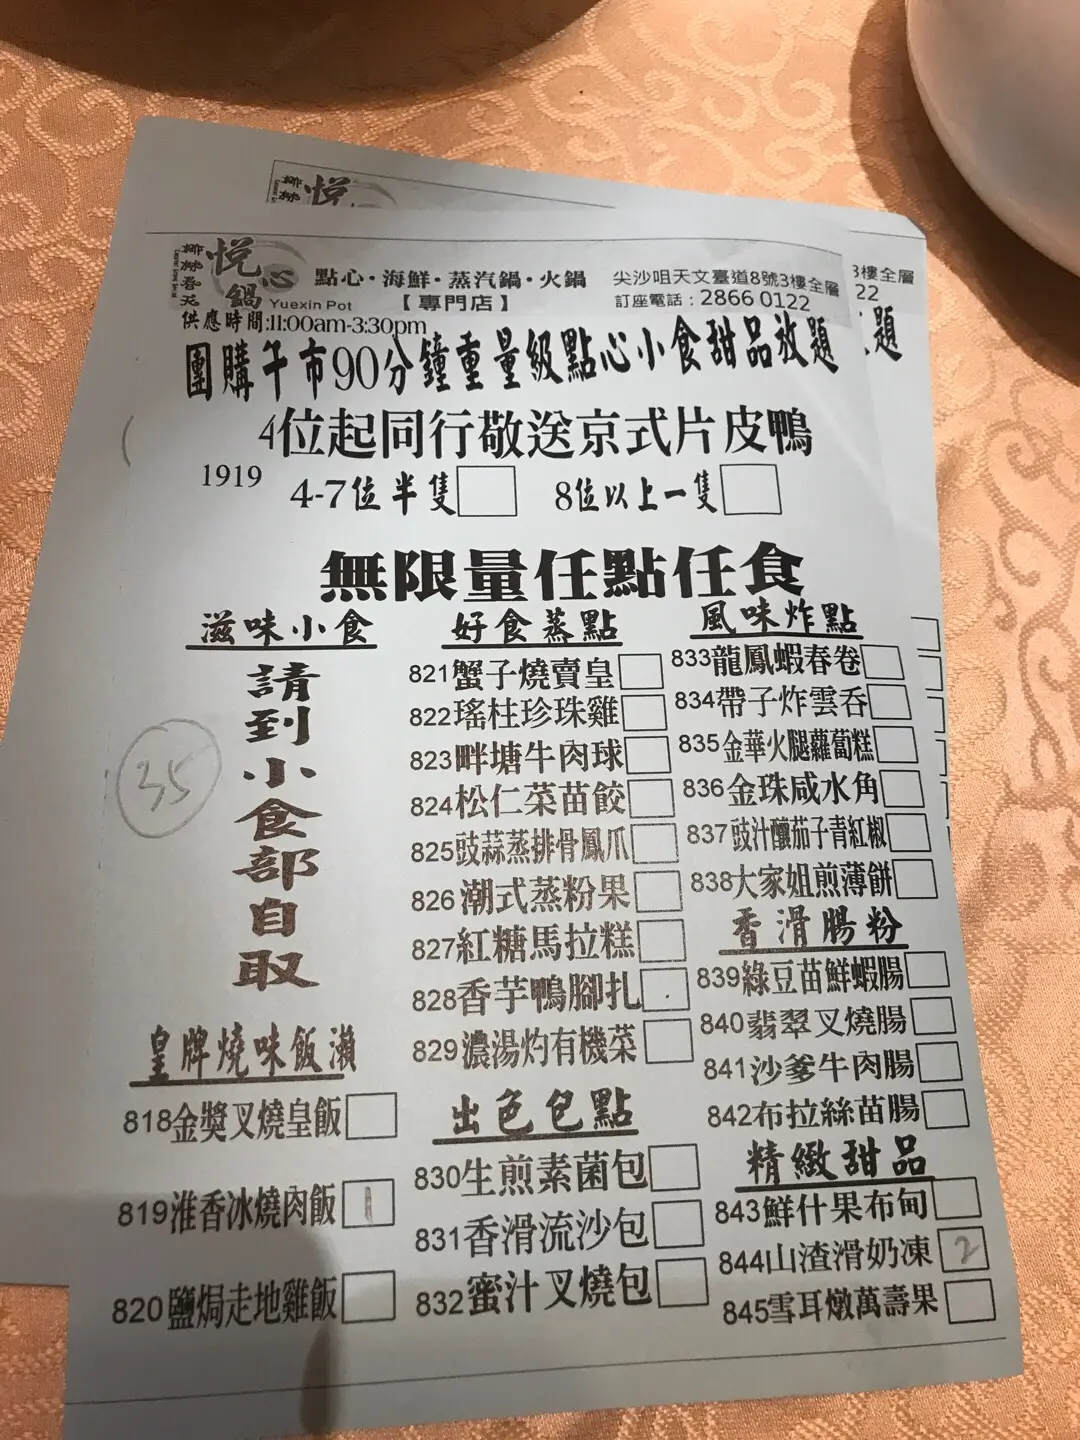 悅
悅心鍋
Yuexin Pot
點心·海鮮·蒸汽鍋·火鍋
【專門店】
尖沙咀天文臺道8號3樓全層
訂座電話：2866 0122
3樓全層
22
供應時間:11:00am-3:30pm
團購午市90分鐘重量級點心小食甜品放題
題
4位起同行敬送京式片皮鴨
1919 4-7位半隻 8位以上一隻
無限量任點任食
滋味小食
請到小食部自取
35
皇牌燒味飯瀨
818金獎叉燒皇飯
819淮香冰燒肉飯 1
820鹽焗走地雞飯
好食蒸點
821蟹子燒賣皇
822瑤柱珍珠雞
823畔塘牛肉球
824松仁菜苗餃
825豉蒜蒸排骨鳳爪
826潮式蒸粉果
827紅糖馬拉糕
828香芋鴨腳扎
829濃湯灼有機菜
出色包點
830生煎素菌包
831香滑流沙包
832蜜汁叉燒包
風味炸點
833龍鳳蝦春卷
834帶子炸雲吞
835金華火腿蘿蔔糕
836金珠咸水角
837豉汁釀茄子青紅椒
838大家姐煎薄餅
香滑腸粉
839綠豆苗鮮蝦腸
840翡翠叉燒腸
841沙爹牛肉腸
842布拉絲苗腸
精緻甜品
843鮮什果布甸
844山渣滑奶凍 2
845雪耳燉萬壽果